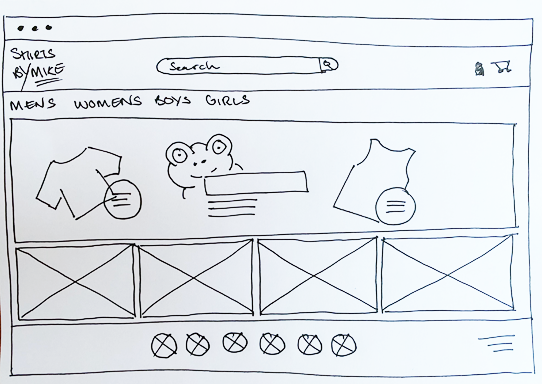 SHIRTS
BY/MIKE
Search
MENS WOMENS BOYS GIRLS